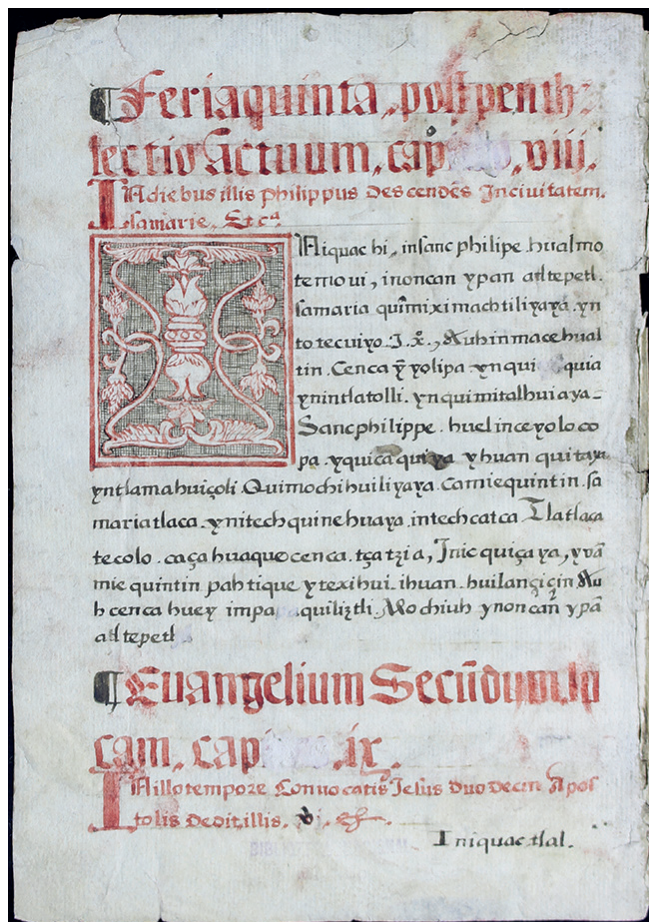 ¶ Feria quinta, post penth:
lectio actuum, cap viii.
In diebus illis philippus descendẽs Inciuitatem.
samarie. Etcª
Iniquac hi, insanc philipe. hualmo
temoui, inoncan ypan altepetl.
samaria quĩmiximachtiliyaya. yn
totecuiyo. J. x̃., Auhinmacehual
tin. Cenca yỹolipa ynqui quia
ynintlatolli. ynquimitalhuiaya_
Sancphilippe. huelinceyoloco
pa. yquicaquiya yhuan quitaya
yntlamahuiçoli. Quimochihuiliyaya. camiequintin. sa
mariatlaca. ynitechquinehuaya. intechcatca Tlatlaca
tecolo. caçahuaquecenca. tçatzia, Inicquiçaya, yvã
miequintin pahtique ytexihui. ihuan. huilançiçin Au
hcencahuey impa quiliztli. Mochiuh ynoncañ ypã
altepetl
¶ Euangelium Secũdum. lu
cam. cap ix.
In illotempore Conuocatis Jesus duodecin Apos
tolis deditillis.
Iniquac tlal.